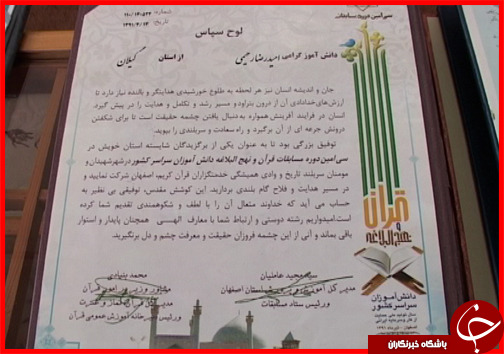 شماره: ۱۱۰/۱۴۰۵۳۳
تاریخ: ۱۳۹۱/۴/۱۴
سی امین دوره مسابقات
لوح سپاس
دانش آموز گرامی امیدرضا رحیمی از استان گیلان
جان و اندیشه انسان نیز هر لحظه به طلوع خورشیدی هدایتگر و بالنده نیاز دارد تا
ارزش‌های خدادادی آن از درون بتراود و مسیر رشد و تکامل و هدایت را در پیش گیرد.
انسان در فرایند آفرینش همواره به دنبال یافتن چشمه حقیقت است تا برای شکفتن
درونش جرعه ای از آن برگیرد و راه سعادت و سربلندی را بپوید.
توفیق بزرگی بود تا به عنوان یکی از برگزیدگان شایسته استان خویش در
سی امین دوره مسابقات قرآن و نهج البلاغه دانش آموزان سراسر کشور در شهر شهیدان و
مومنان سربلند، تاریخ و وادی همیشگی خدمتگزاران قرآن کریم، اصفهان شرکت نمایید و
در مسیر هدایت و فلاح گام بلندی بردارید. این کوشش مقدس، توفیقی بی نظیر به
حساب می آید که خداوند متعال آن را با لطف و شکوهمندی تقدیم شما کرده
است. امیدواریم رشته دوستی و ارتباط شما با معارف الهی همچنان پایدار و استوار
باقی بماند و آنی از این چشمه فروزان حقیقت و معرفت چشم و دل برنگیرید.
قرآن
و
نهج البلاغه
دانش آموزان
سراسر کشور
سید مجید عاملیان
مدیر کل آموزش و پرورش استان اصفهان
و رئیس ستاد مسابقات
محمد بنیادی
مشاور وزیر در امور قرآن
مدیر کل قرآن، نماز و عترت
و رئیس دبیرخانه آموزش عمومی قرآن
باشگاه خبرنگاران